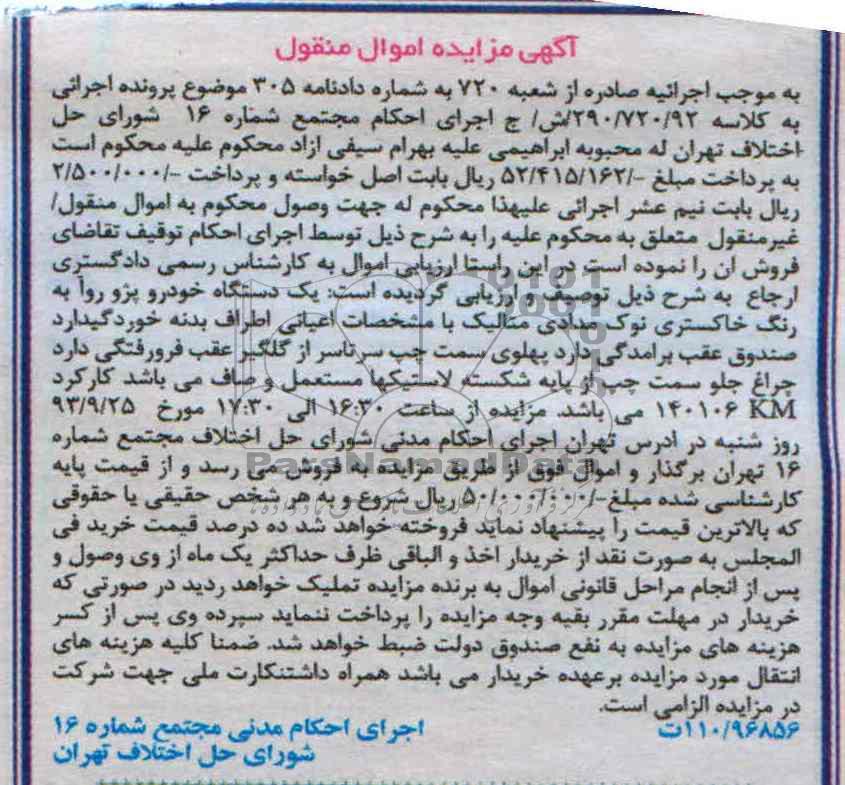 آگهی مزایده اموال منقول
به موجب اجرائیه صادره از شعبه ۷۲۰ به شماره دادنامه ۳۰۵ موضوع پرونده اجرائی
به کلاسه ۲۹۰/۷۲۰/۹۲/ش/ ج اجرای احکام مجتمع شماره ۱۶ شورای حل
اختلاف تهران له محبوبه ابراهیمی علیه بهرام سیفی ازاد محکوم علیه محکوم است
به پرداخت مبلغ -/۵۲/۴۱۵/۱۶۲ ریال بابت اصل خواسته و پرداخت -/۲/۵۰۰/۰۰۰
ریال بابت نیم عشر اجرائی علیهذا محکوم له جهت وصول محکوم به اموال منقول/
غیرمنقول متعلق به محکوم علیه را به شرح ذیل توسط اجرای احکام توقیف تقاضای
فروش ان را نموده است در این راستا ارزیابی اموال به کارشناس رسمی دادگستری
ارجاع به شرح ذیل توصیف و ارزیابی گردیده است: یک دستگاه خودرو پژو روآ به
رنگ خاکستری نوک مدادی متالیک با مشخصات اعیانی اطراف بدنه خوردگیدارد
صندوق عقب برامدگی دارد پهلوی سمت چپ سرتاسر از گلگیر عقب فرورفتگی دارد
چراغ جلو سمت چپ از پایه شکسته لاستیکها مستعمل و صاف می باشد کارکرد
۱۴۰۱۰۶ KM می باشد. مزایده از ساعت ۱۶:۳۰ الی ۱۷:۳۰ مورخ ۹۳/۹/۲۵
روز شنبه در ادرس تهران اجرای احکام مدنی شورای حل اختلاف مجتمع شماره
۱۶ تهران برگذار و اموال فوق از طریق مزایده به فروش می رسد و از قیمت پایه
کارشناسی شده مبلغ-/۵۰/۰۰۰/۰۰۰ ریال شروع و به هر شخص حقیقی یا حقوقی
که بالاترین قیمت را پیشنهاد نماید فروخته خواهد شد ده درصد قیمت خرید فی
المجلس به صورت نقد از خریدار اخذ و الباقی ظرف حداکثر یک ماه از وی وصول و
پس از انجام مراحل قانونی اموال به برنده مزایده تملیک خواهد ردید در صورتی که
خریدار در مهلت مقرر بقیه وجه مزایده را پرداخت ننماید سپرده وی پس از کسر
هزینه های مزایده به نفع صندوق دولت ضبط خواهد شد. ضمنا کلیه هزینه های
انتقال مورد مزایده برعهده خریدار می باشد همراه داشتنکارت ملی جهت شرکت
در مزایده الزامی است.
۱۱۰/۹۶۸۵۶ت
اجرای احکام مدنی مجتمع شماره ۱۶
شورای حل اختلاف تهران
ParsNamadData